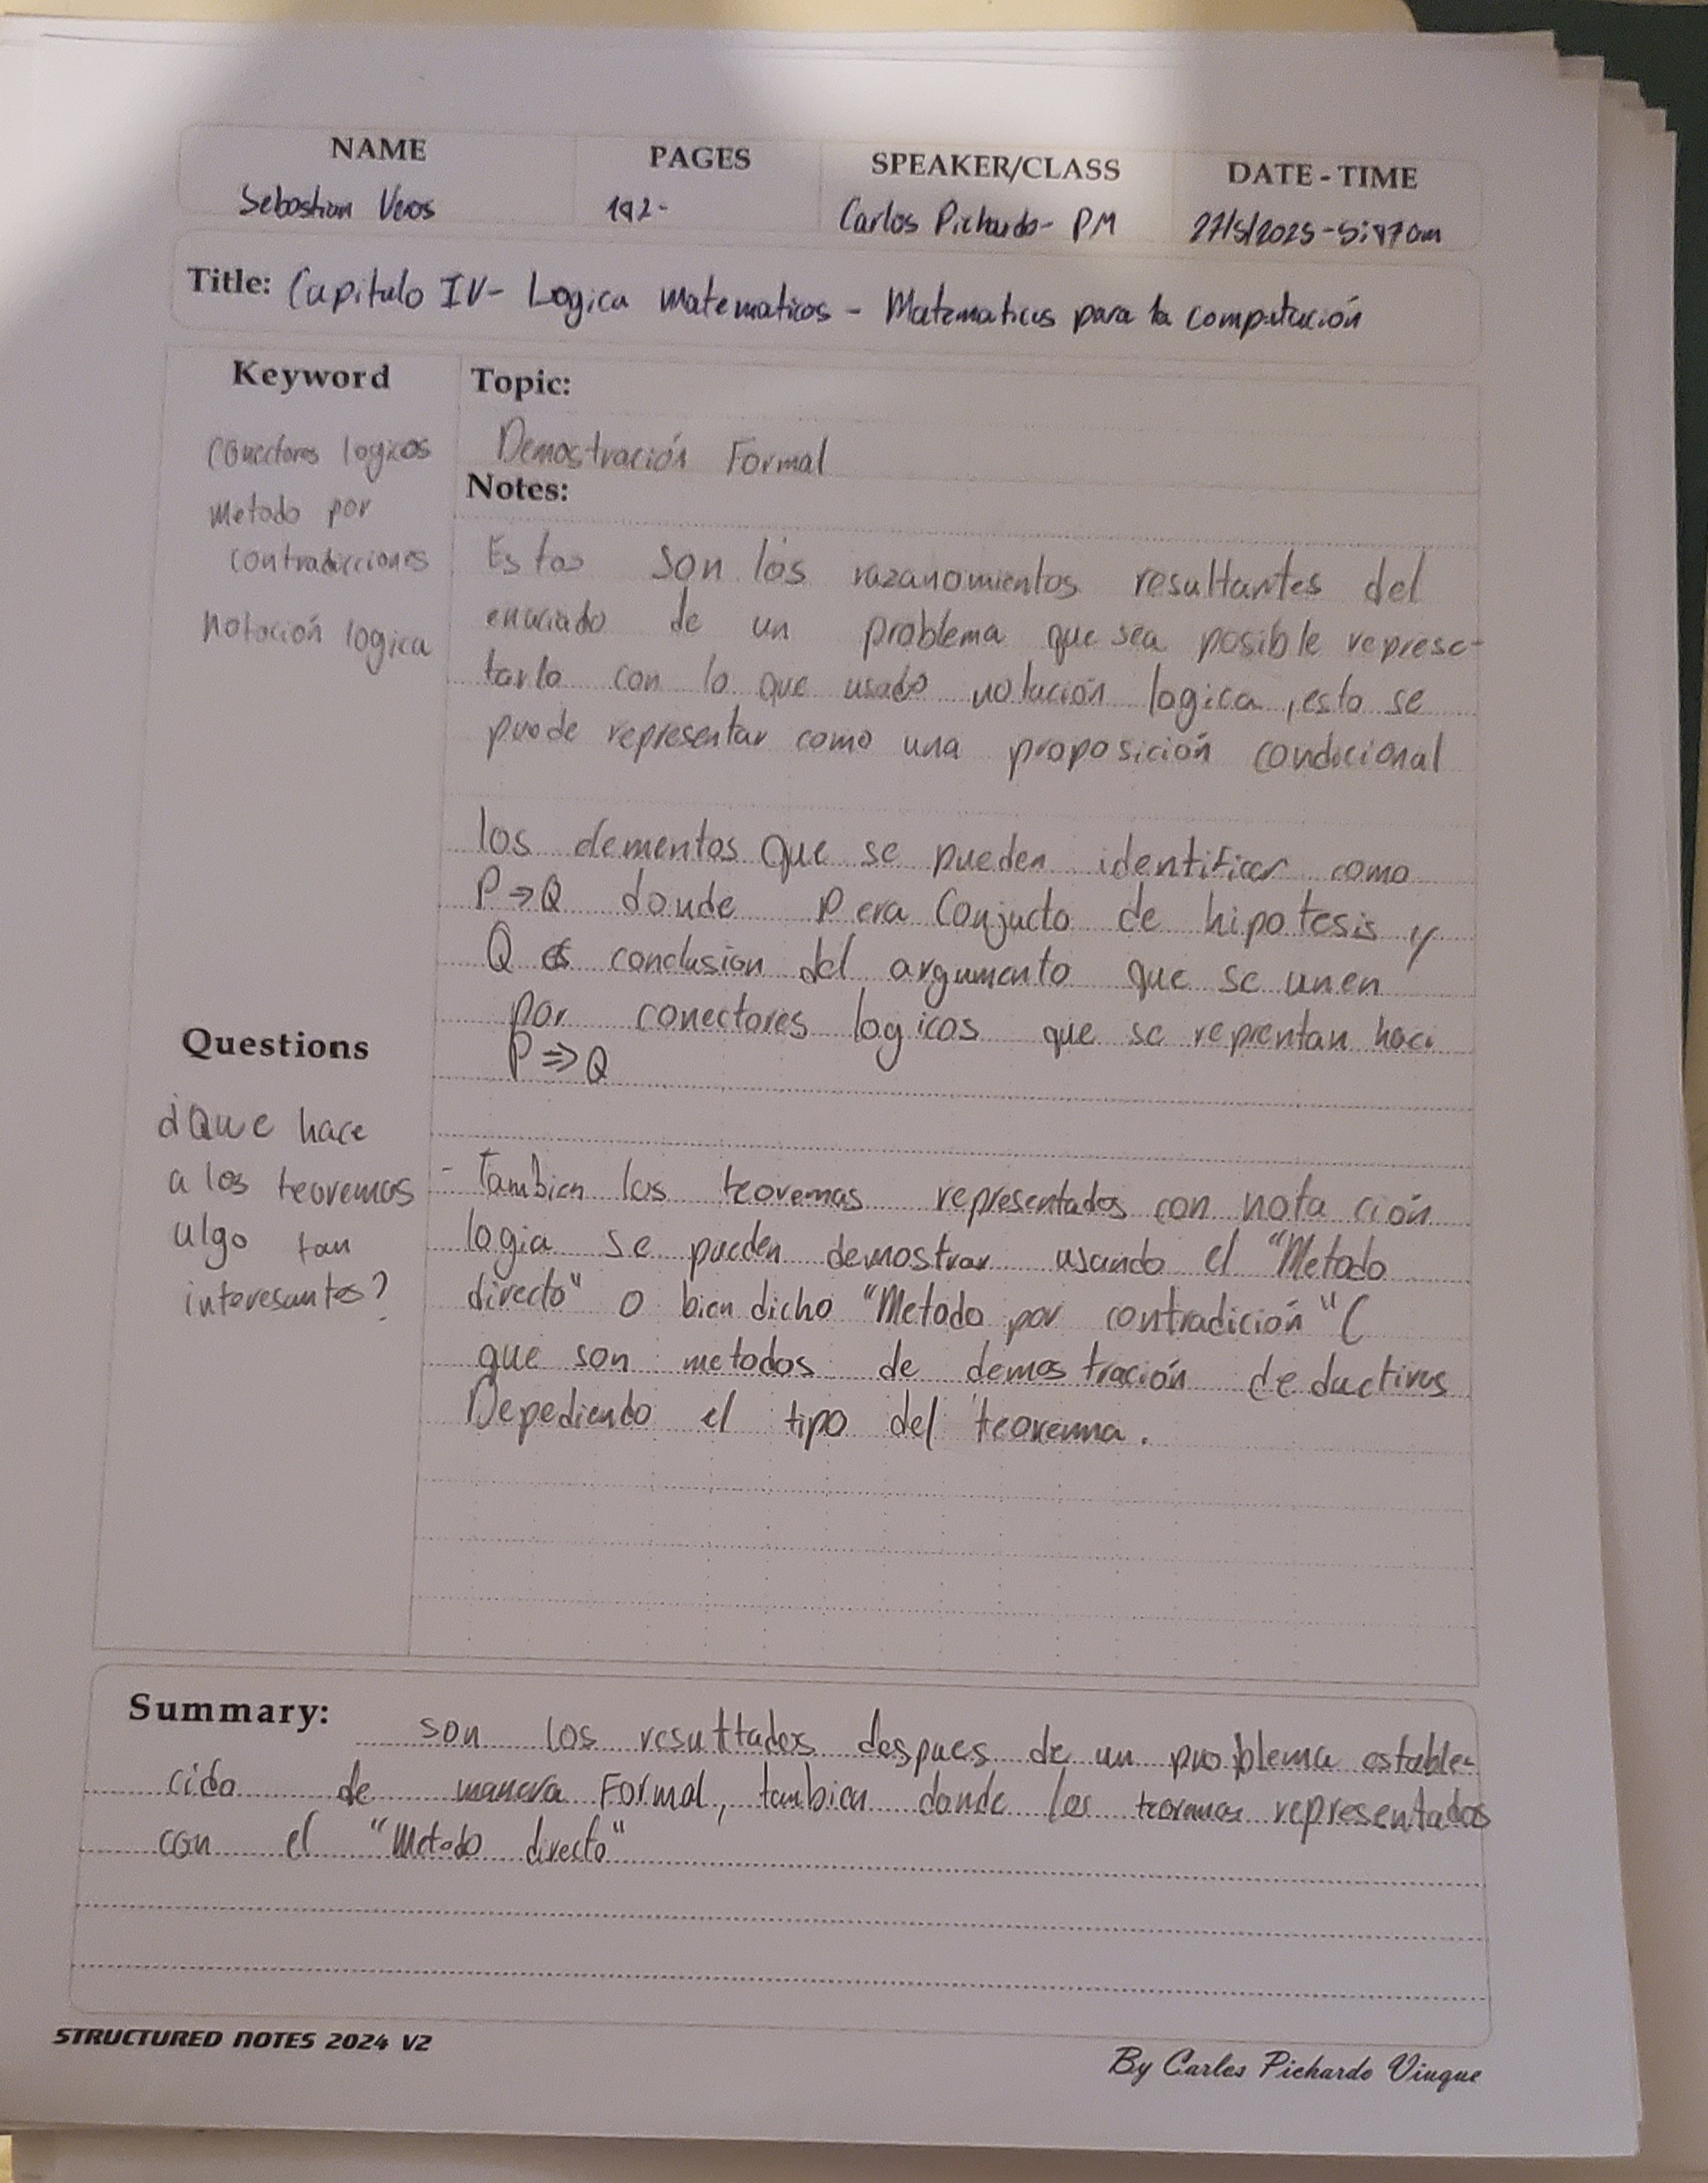 NAME PAGES SPEAKER/CLASS DATE - TIME
Sebastian 192- Carlos Pichardo- PM 27/5/2025-5:47am
Title: Capitulo IV- Logica Matematicas - Matematicas para la computación
Keyword
Conectores logicos
Metodo por
contradicciones
Notación logica
Topic:
Demostración Formal
Notes:
Estos son los razanomientos resultantes del
enuciado de un problema que sea posible represe-
tarlo con lo que usado notación logica, esto se
puede representar como una proposición condicional
los elementos que se pueden identificar como
P⇒Q donde P era Conjucto de hipotesis y
Q es conclusion del argumento que se unen
por conectores logicos que se reprentan haci
P⇒Q
Questions
¿Que hace
a los teoremas
algo tan
interesantes?
- Tambien los teoremas representados con nota ción
logia se pueden demostrar usando el "Metodo
directo" o bien dicho "Metodo por contradición" (
que son metodos de demostración deductivos
Depediendo el tipo del teorema.
Summary: son los resultados despues de un problema estable-
cido de manera Formal, tambien donde los teoremas representados
con el "Metodo directo"
STRUCTURED NOTES 2024 V2
By Carlos Pichardo Viuque